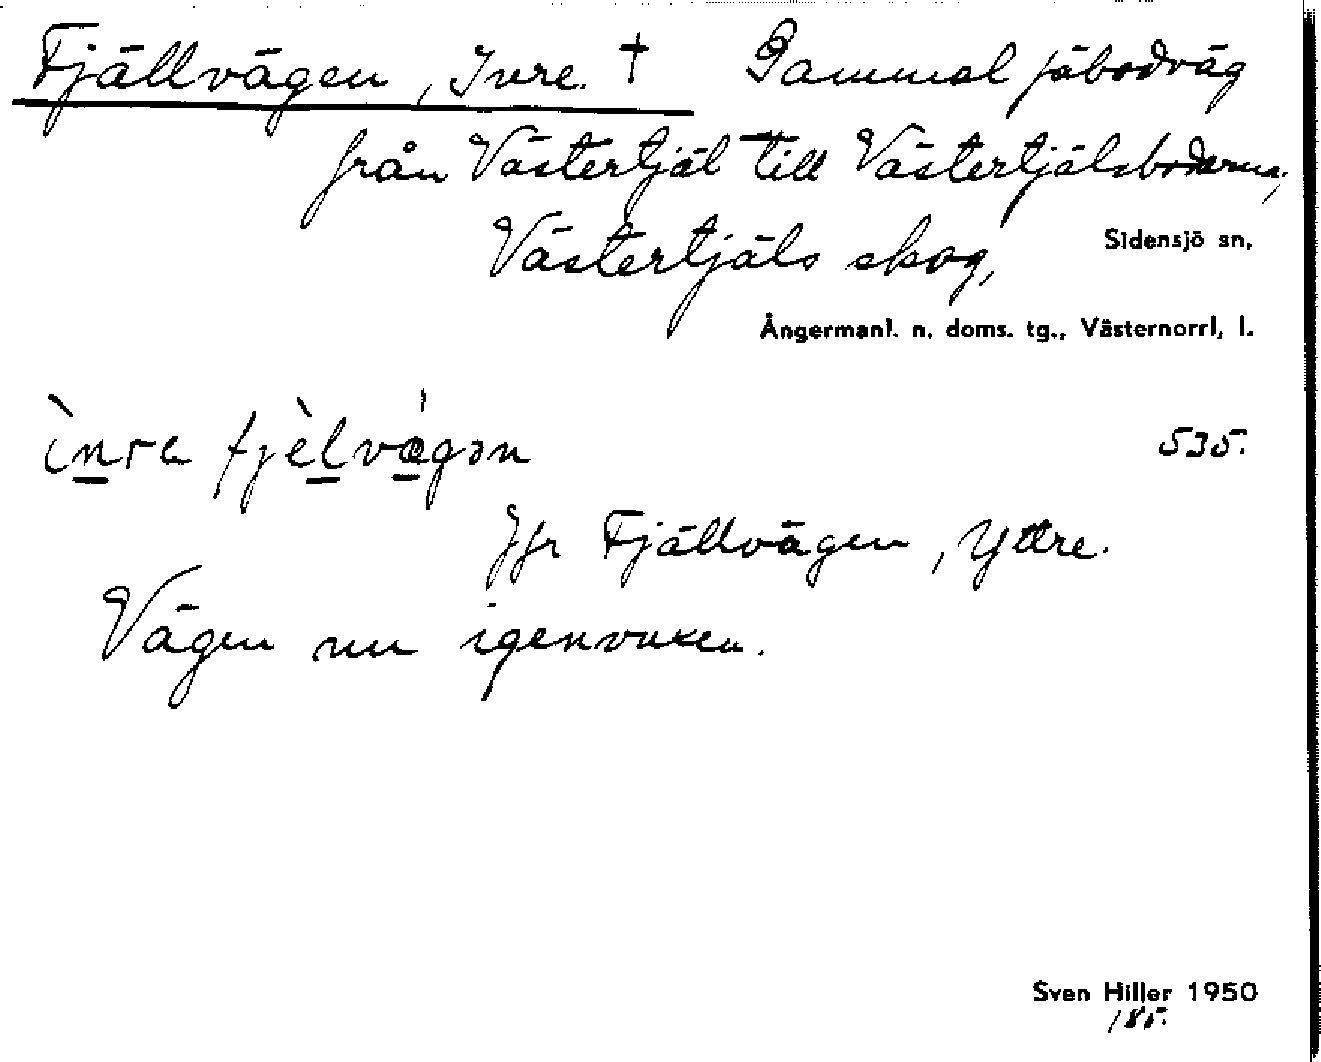 Fjällvägen, Inre. † Gammal fäbodväg
från Västertjäl till Västertjälsbodarna,
Västertjäls skog,
Sidensjö sn,
Ångermanl. n. doms. tg., Västernorrl, l.
ìnrɐ fjèlvǽgən 535.
Jfr Fjällvägen, Yttre.
Vägen nu igenvuxen.
Sven Hiller 1950
185.